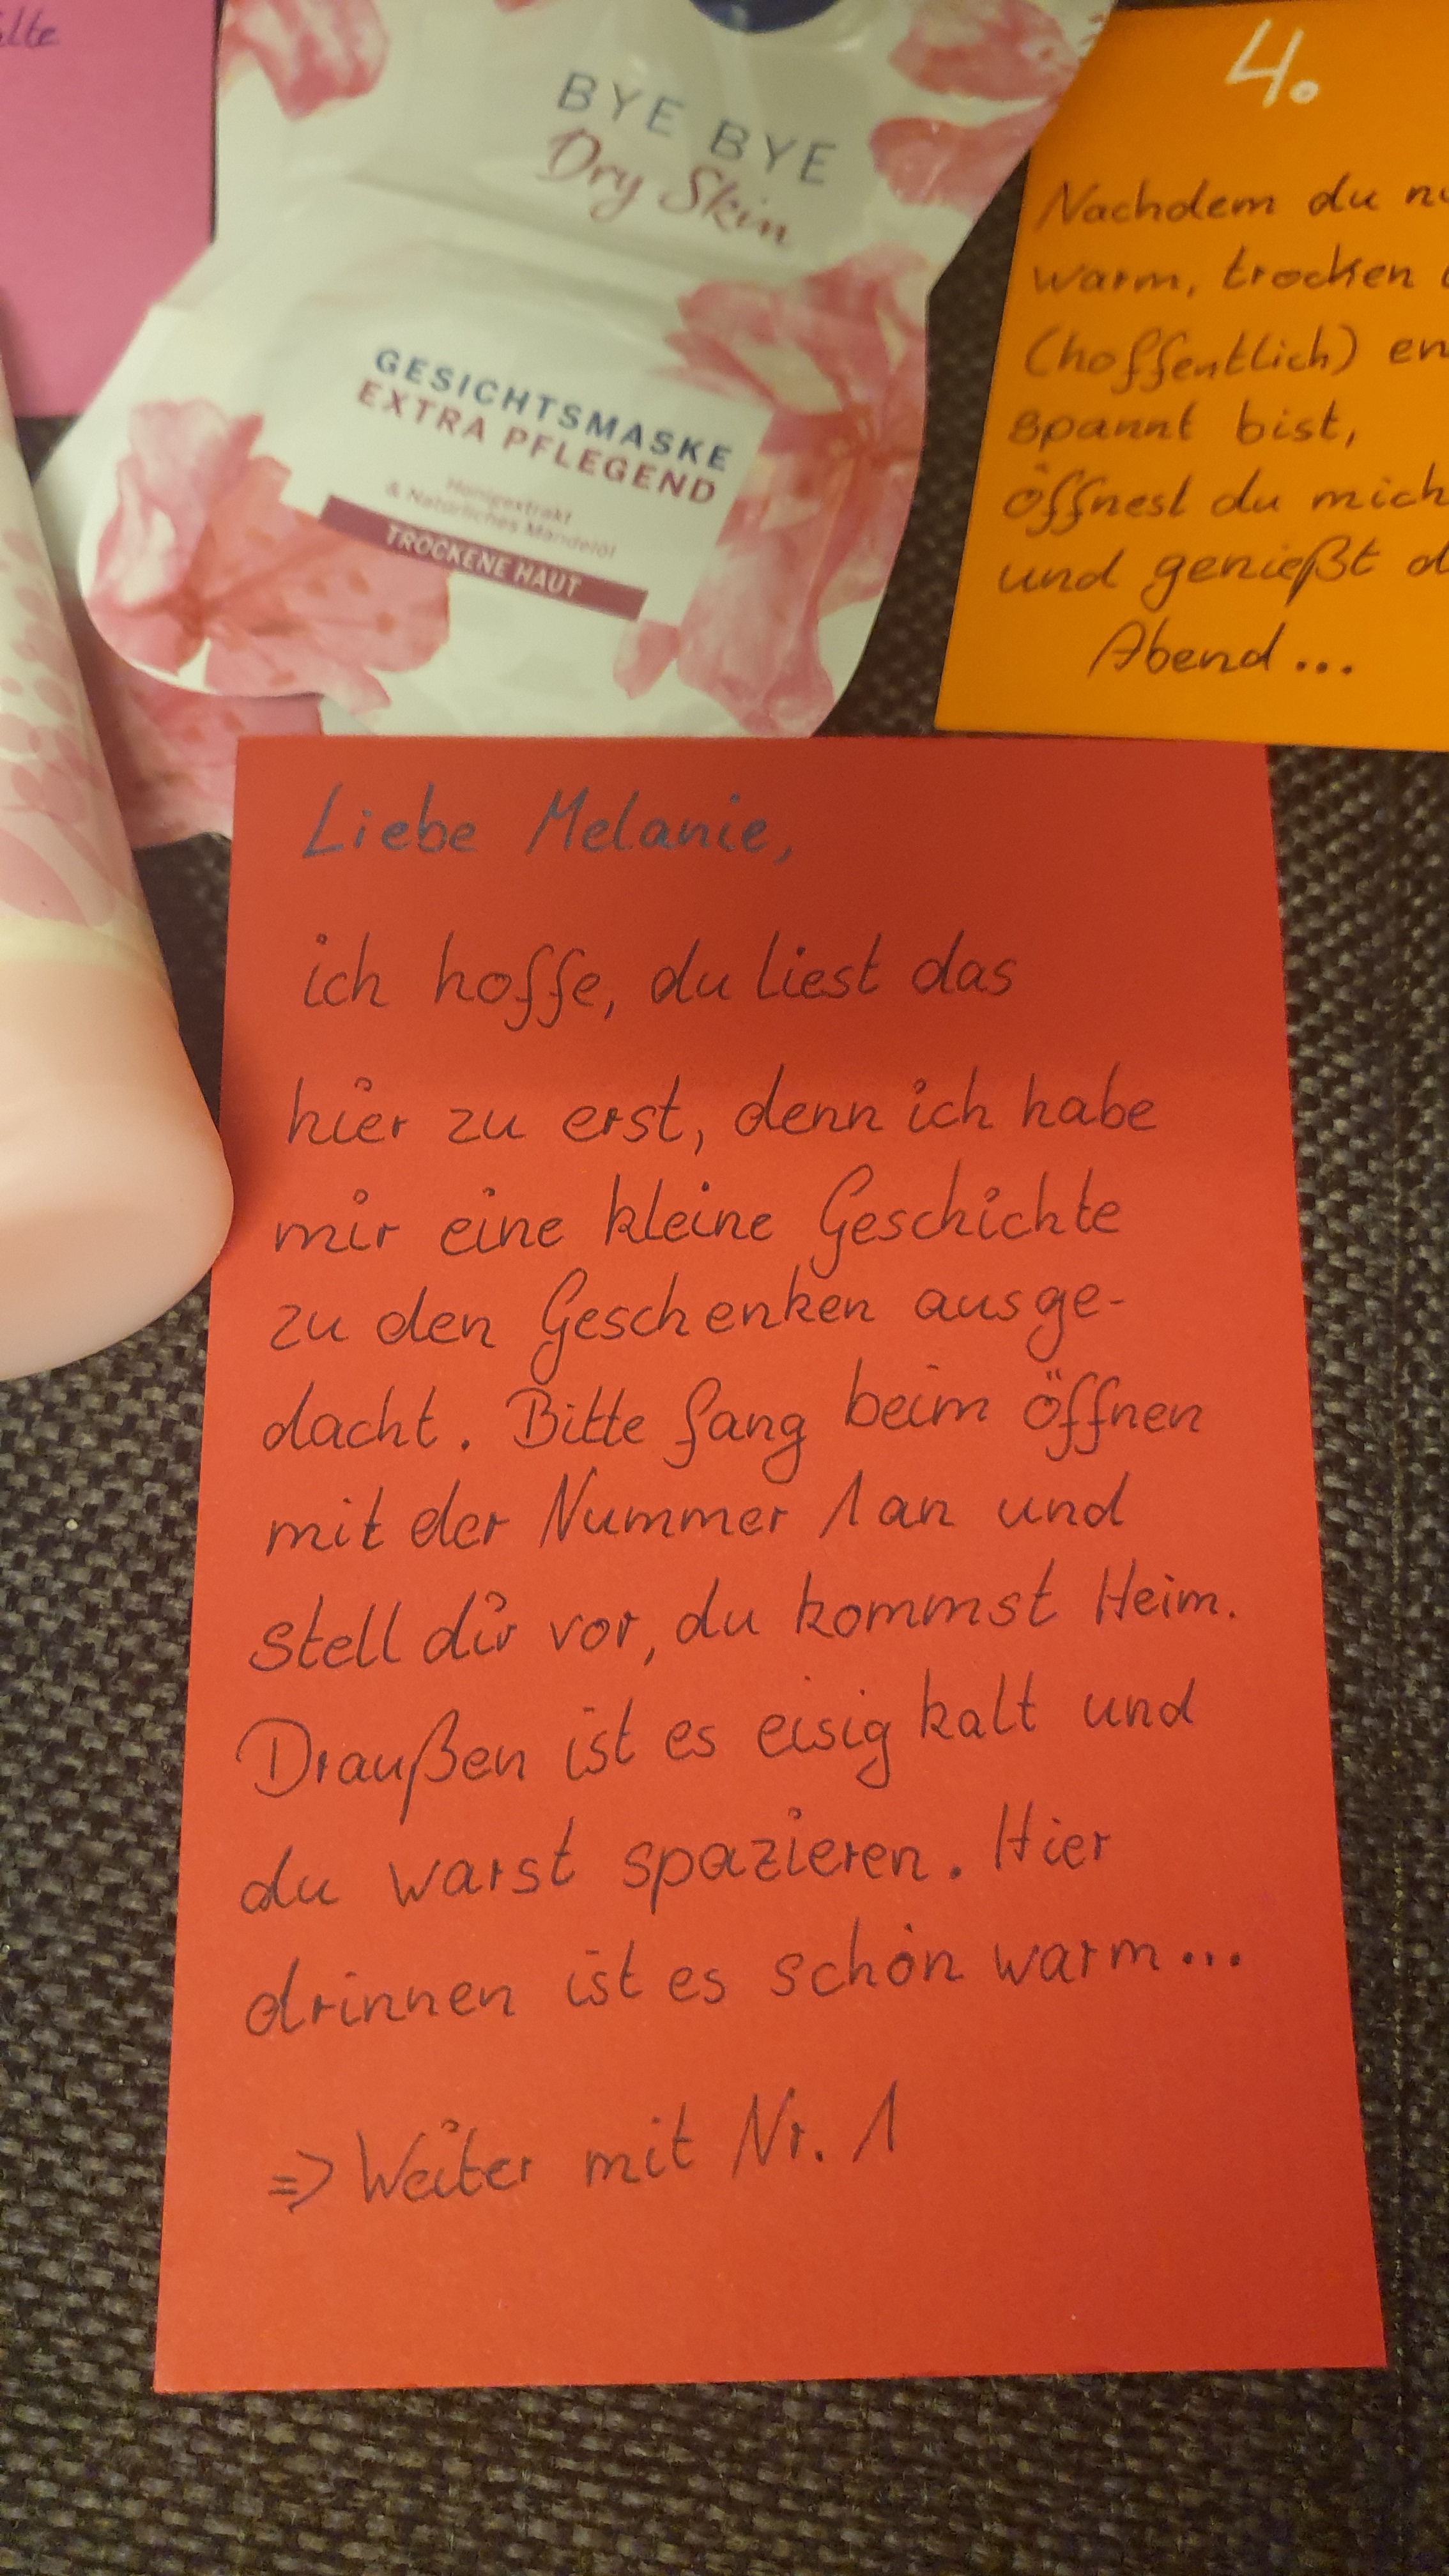 BYE BYE
Dry Skin
GESICHTSMASKE
EXTRA PFLEGEND
Honigextrakt
& Natürliches Mandelöl
TROCKENE HAUT
4.
Nachdem du
warm, trocken
(hoffentlich) en
spannt bist,
öffnest du mich
und genießt
Abend...
Liebe Melanie,
ich hoffe, du liest das
hier zu erst, denn ich habe
mir eine kleine Geschichte
zu den Geschenken ausge-
dacht. Bitte fang beim öffnen
mit der Nummer 1 an und
stell dir vor, du kommst Heim.
Draußen ist es eisig kalt und
du warst spazieren. Hier
drinnen ist es schön warm...
=> Weiter mit Nr. 1